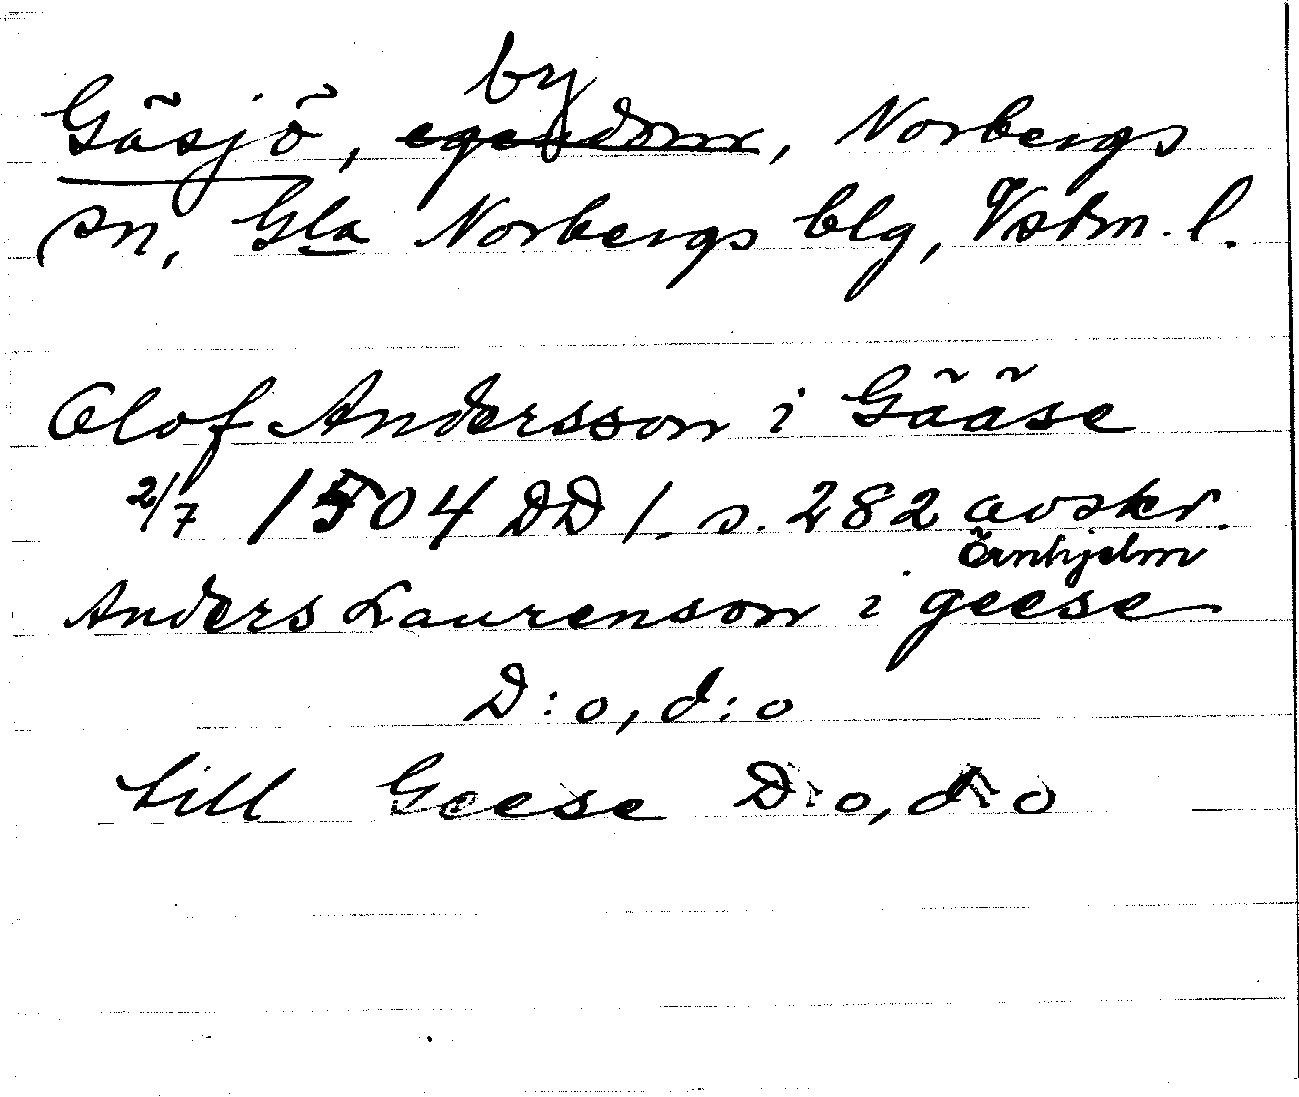 by
Gäsjö, egendom, Norbergs
sn, Gla Norbergs blg, Vstm. l.
Olof Andersson i Gääse
2/7 1504 DD 1. s. 282 avskr.
Örnhjelm
Anders Laurenson i geese
D:o, d:o
till Geese D:o, d:o